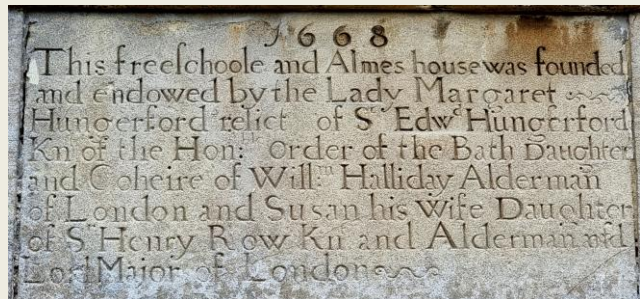 1668
This freeſchoole and Almes house was founded
and endowed by the Lady Margaret
Hungerford relict of Sr Edwd Hungerford
Kn of the Hon: ble Order of the Bath Daughter
and Coheire of Will:m Halliday Alderman
of London and Susan his Wife Daughter
of Sr Henry Row Kn and Alderman and
Lord Major of London